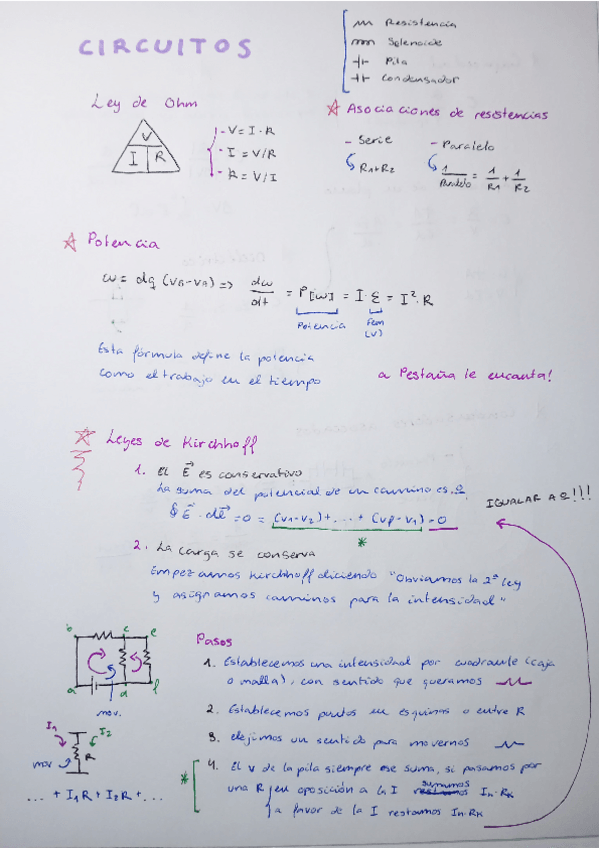 CIRCUITOS
Resistencia
Solenoide
Pila
Condensador
Ley de Ohm
V
I R
- V = I · R
- I = V/R
- R = V/I
Asociaciones de resistencias
- Serie
R1+R2
- Paralelo
1/Paralelo = 1/R1 + 1/R2
Potencia
W = dq (VB-VA) => dw/dt = P[W] = I · ε = I² · R
Potencia
Fem
(V)
Esta fórmula define la potencia
como el trabajo en el tiempo
a Pestaña le encanta!
Leyes de Kirchhoff
1. El E⃗ es conservativo
La suma del potencial de un camino es 0
∮ E⃗ · dl⃗ = 0 = (V1-V2)+...+(Vp-V1) = 0
*
IGUALAR A 0!!!
2. La carga se conserva
Empezamos Kirchhoff diciendo "Obviamos la 2ª ley
y asignamos caminos para la intensidad"
b c e
a d f
mov.
I1 I2
mov R
... + I1R + I2R + ...
Pasos
1. Establecemos una intensidad por cuadrante (caja
o malla), con sentido que queramos
2. Establecemos puntos en esquinas o entre R
3. elejimos un sentido para movernos
*
4. El V de la pila siempre se suma, si pasamos por
una R en oposición a la I sumamos In·Rk
a favor de la I restamos In·Rk